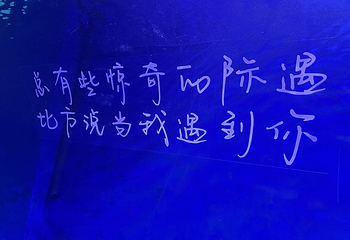 总有些惊奇的际遇
比方说当我遇到你